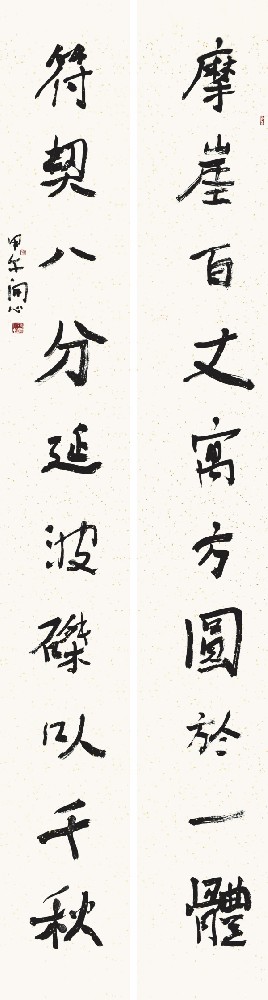 摩崖百丈寓方圓於一體
符契八分延波磔以千秋
甲午開心